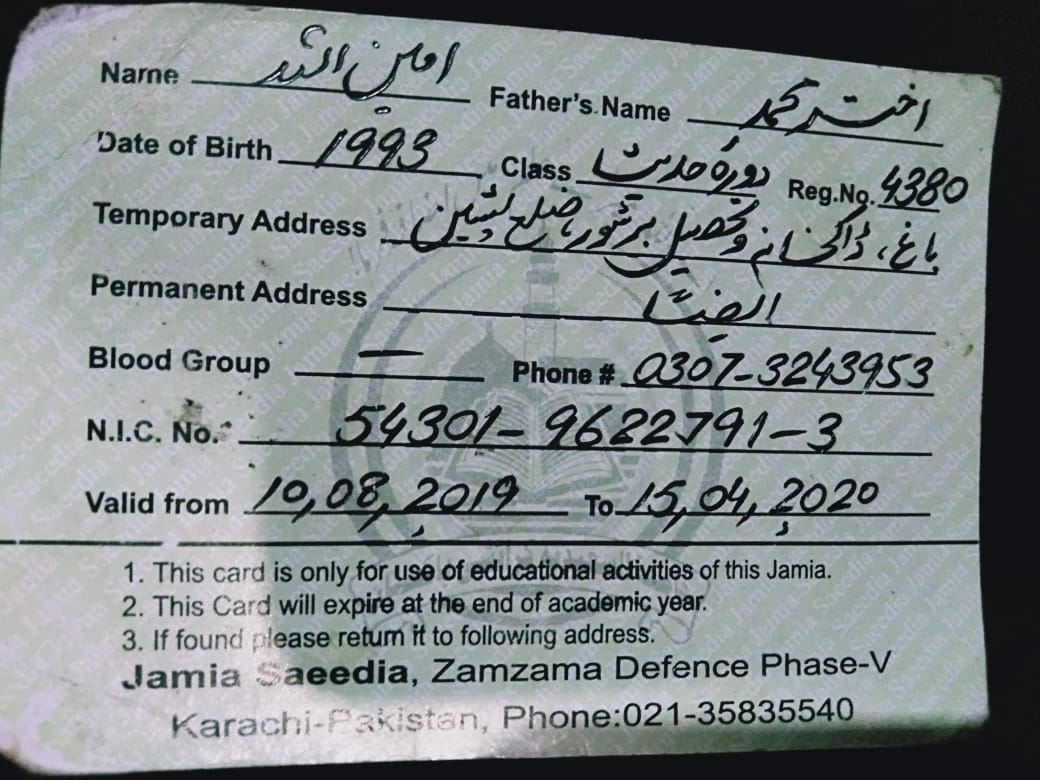 Name امین اللہ Father's Name اختر محمد
Date of Birth 1993 Class دورۂ حدیث Reg.No. 4380
Temporary Address باغ، ڈاکخانہ وتحصیل برشور، ضلع پشین
Permanent Address ایضاً
Blood Group — Phone # 0307-3243953
N.I.C. No. 54301-9622791-3
Valid from 10,08,2019 To 15,04,2020
1. This card is only for use of educational activities of this Jamia.
2. This Card will expire at the end of academic year.
3. If found please return it to following address.
Jamia Saeedia, Zamzama Defence Phase-V
Karachi-Pakistan, Phone:021-35835540